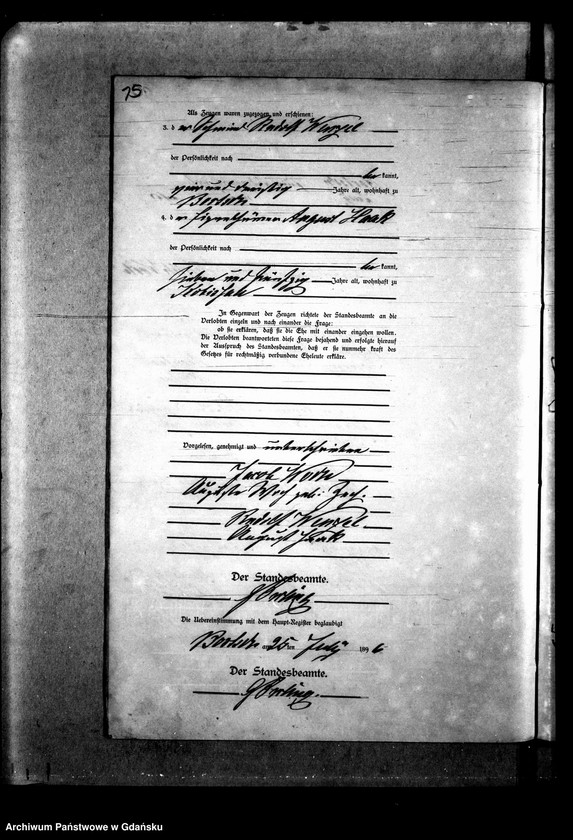 75
Als Zeugen waren zugezogen und erschienen:
3. der Schmied Rudolf Wenzel
der Persönlichkeit nach
bekannt,
und dreißig Jahre alt, wohnhaft zu
4. der Eigenthümer August Haak
der Persönlichkeit nach
bekannt,
sieben und fünfzig Jahre alt, wohnhaft zu
In Gegenwart der Zeugen richtete der Standesbeamte an die
Verlobten einzeln und nach einander die Frage:
ob sie erklären, daß sie die Ehe mit einander eingehen wollen.
Die Verlobten beantworteten diese Frage bejahend und erfolgte hierauf
der Ausspruch des Standesbeamten, daß er sie nunmehr kraft des
Gesetzes für rechtmäßig verbundene Eheleute erkläre.
Vorgelesen, genehmigt und unterschrieben
Jacob
Auguste geb.
Rudolf Wenzel
August Haak
Der Standesbeamte.
Die Uebereinstimmung mit dem Haupt-Register beglaubigt
am 25 ten July 1896
Der Standesbeamte.
Archiwum Państwowe w Gdańsku